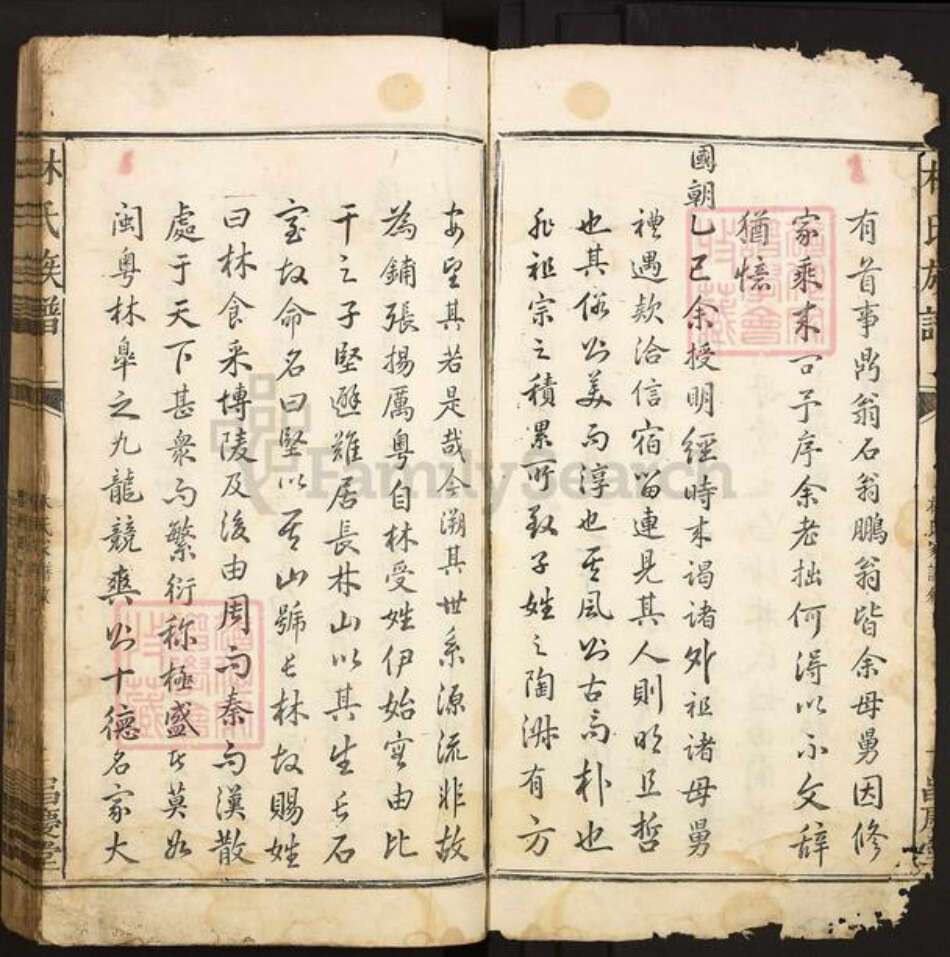 有首事鼎翁石翁鵬翁皆余母舅因修
家乘來召予序余老拙何得以不文辭
猶憶
國朝乙巳余授明經時來謁諸外祖諸母舅
禮遇款洽信宿留連見其人則明且哲
也其俗則美而淳也其風則古而朴也
非祖宗之積累所致子姓之陶淑有方
安望其若是哉今溯其世系源流非故
為鋪張揚厲粵自林受姓伊始寔由比
干之子堅避難居長林山以其生於石
室故命名曰堅以其山號長林故賜姓
曰林食采博陵及後由周而秦而漢散
處于天下甚衆而繁衍稱極盛者莫如
閩粵林皐之九龍競爽則十德名家大
林氏族譜
昌慶堂
FamilySearch